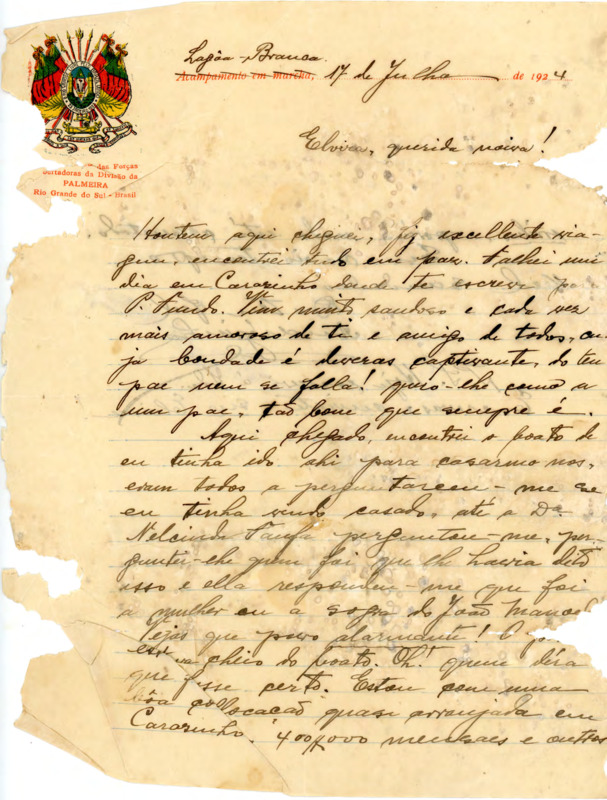 Lagôa-Branca.
Acampamento em marcha, 17 de Julho de 1924
Elvira, querida noiva!
das Forças
portadoras da Divisão da
PALMEIRA
Rio Grande do Sul - Brasil
Hontem aqui cheguei, fiz excellente via-
gem, encontrei tudo em paz. Falhei um
dia em Carazinho donde te escrevi para
P. Fundo. Vim muito saudoso e cada vez
mais amoroso de ti e amigo de todos, cu-
ja bondade é deveras captivante, do teu
pae nem se falla! quero-lhe como a
um pae, tão bom que sempre é.
Aqui chegado, encontrei o boato de
eu tinha ido ahi para casarmo nos,
eram todos a perguntarem-me se
eu tinha vindo casado, até a Da
Nelcinda perguntou-me, per-
guntei-lhe quem foi que lhe havia dito
isso e ella respondeu-me que foi
a mulher ou a sogra do João Manoel
Vejas que povo alarmante!
cheio do boato. Oh! quem déra
que fosse certo. Estou com uma
bôa collocacão quasi arranjada em
Carazinho. 400$000 mensaes e outros